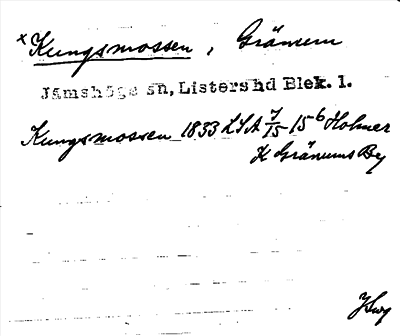 x Kungsmossen, Gränum
Jämshögs sn, Listers hd Blek. l.
Kungsmossen 1833 LSA 7/15-15⁶ Holmer
K Gränums By